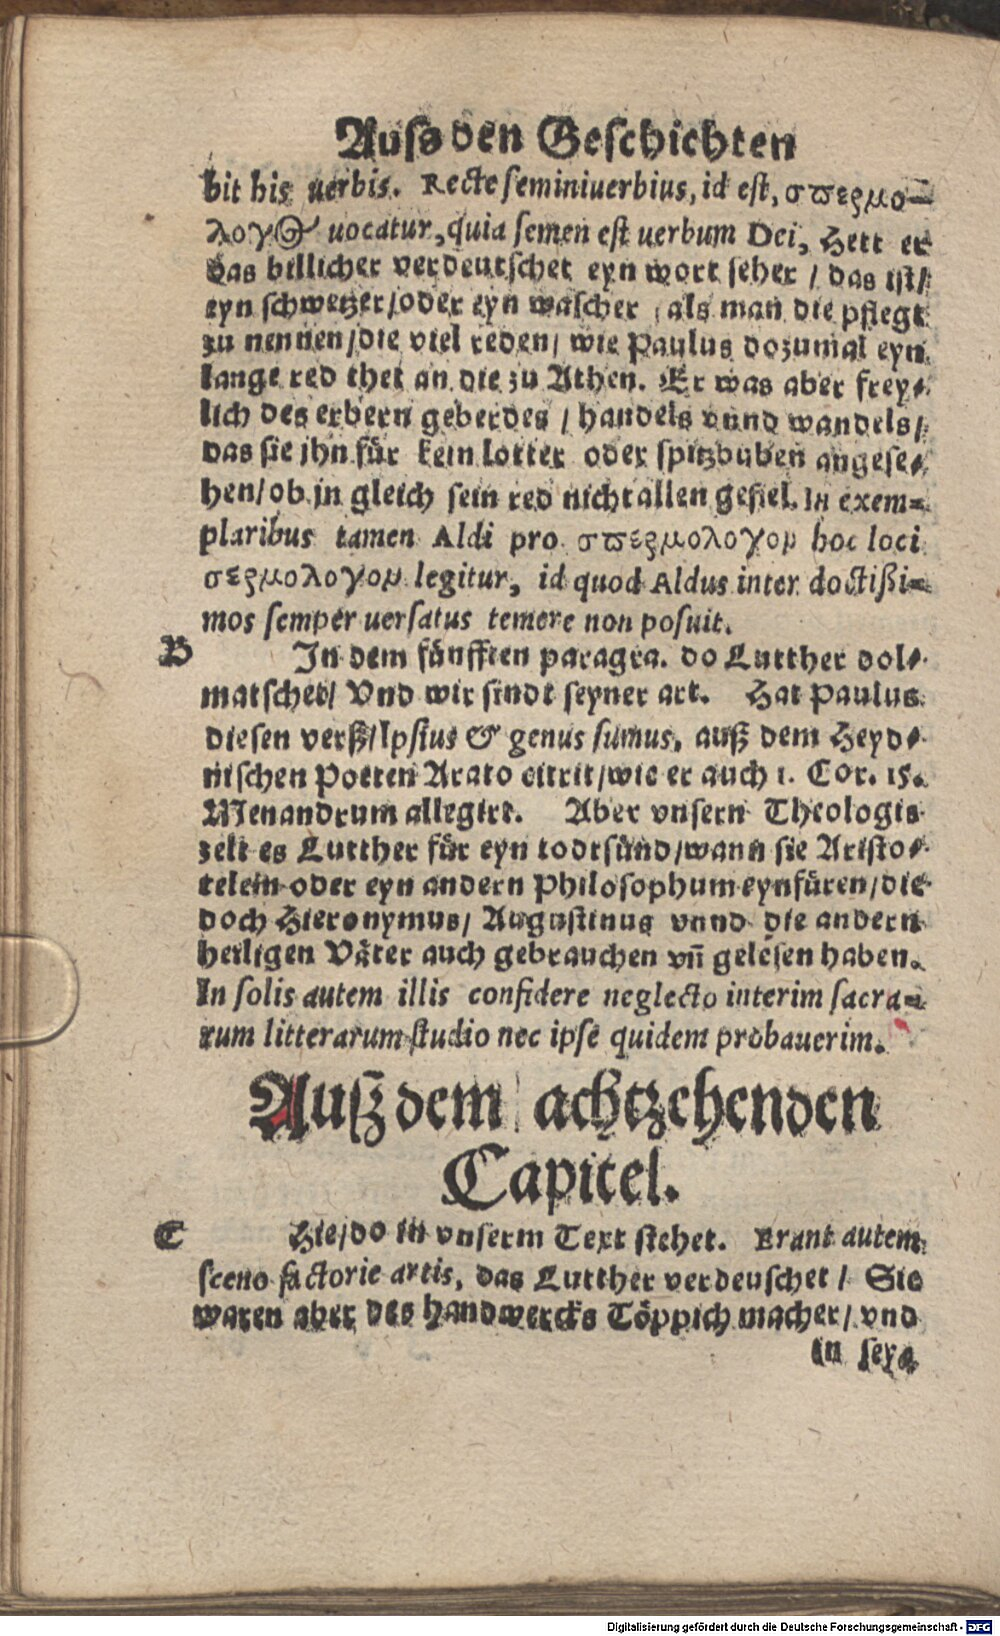 Auſs den Geſchichten
bit his uerbis. Recte ſeminiuerbius, id eſt, σπερμο-
λογος uocatur, quia ſemen eſt uerbum Dei, Hett er
das billicher verdeutſchet eyn wort ſeher / das iſt /
eyn ſchwetzer / oder eyn waſcher / als man die pflegt
zu nennen / die viel reden / wie Paulus dozumal eyn
lange red thet an die zu Athen. Er was aber frey⸗
lich des erbern geberdes / handels vnnd wandels /
das ſie jhn fůr kein lotter oder ſpitzbuben angeſe⸗
hen / ob jn gleich ſein red nicht allen gefiel. In exem⸗
plaribus tamen Aldi pro σπερμολογον hoc loci
σερμολογον legitur, id quod Aldus inter doctißi⸗
mos ſemper uerſatus temere non poſuit.
B In dem fůnfften paragra. do Lutther dol⸗
matſchet / Vnd wir ſindt ſeyner art. Hat Paulus
dieſen verß / Ipſius & genus ſumus, auß dem Heyd⸗
niſchen Poeten Arato citirt / wie er auch 1. Cor. 15.
Menandrum allegirt. Aber vnſern Theologis
zelt es Lutther fůr eyn todtſůnd / wann ſie Ariſto⸗
telem oder eyn andern Philoſophum eynfůren / die
doch Hieronymus / Auguſtinus vnnd die andern
heiligen Våter auch gebrauchen vn̄ geleſen haben.
In ſolis autem illis confidere neglecto interim ſacra⸗
rum litterarum ſtudio nec ipſe quidem probauerim.
Auß dem achtzehenden
Capitel.
C Hie / do in vnſerm Text ſtehet. Erant autem
ſceno factorie artis, das Lutther verdeuſchet / Sie
waren aber des handwercks Töppich macher / vnd
in ſeyn
Digitalisierung gefördert durch die Deutsche Forschungsgemeinschaft - DFG